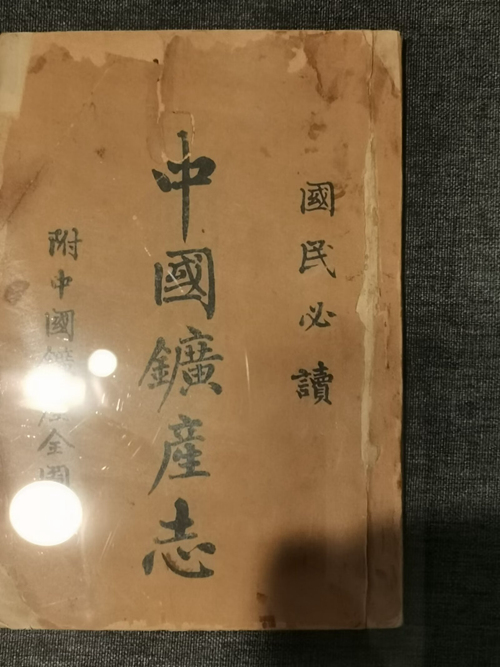 國民必讀
中國鑛産志
附中國鑛産全圖